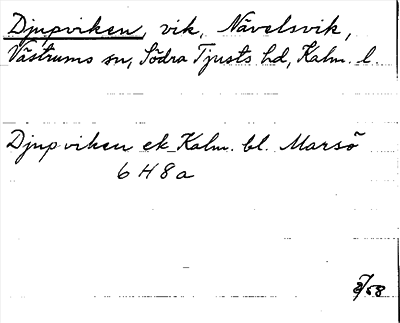 Djupviken, vik, Nävelsvik,
Västrums sn, Södra Tjusts hd, Kalm. l.
Djupviken ek Kalm. bl. Marsö
6 H 8 a